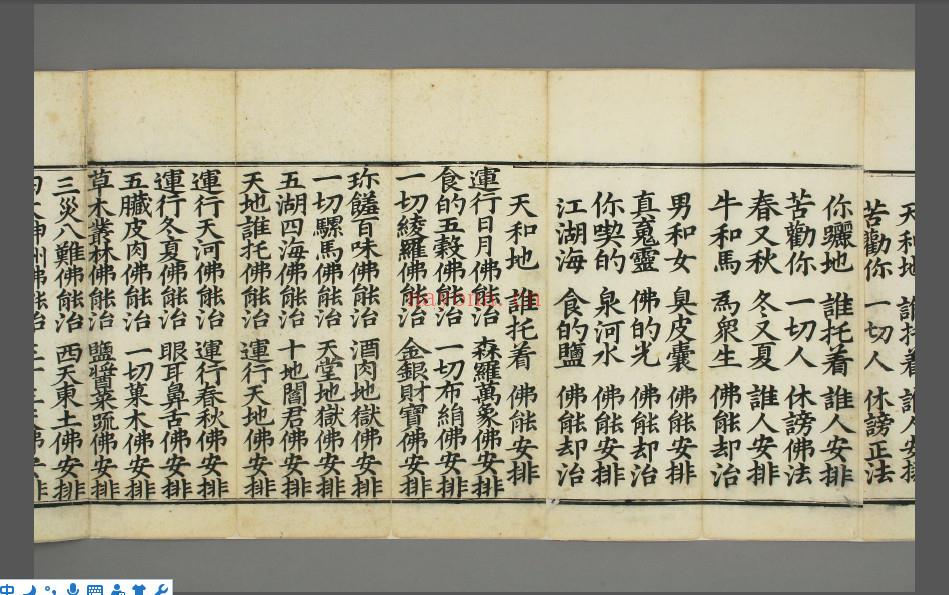 天和地 誰托着 誰人安排
苦勸你 一切人 休謗正法
你曬地 誰托着 誰人安排
苦勸你 一切人 休謗佛法
春又秋 冬又夏 誰人安排
牛和馬 為眾生 佛能却治
男和女 臭皮囊 佛能安排
真䰟靈 佛的光 佛能却治
你喫的 泉河水 佛能安排
江湖海 食的鹽 佛能却治
天和地 誰托着 佛能安排
運行日月佛能治 森羅萬象佛安排
食的五穀佛能治 一切布絹佛安排
一切綾羅佛能治 金銀財寶佛安排
珎饈百味佛能治 酒肉地獄佛安排
一切騾馬佛能治 天堂地獄佛安排
五湖四海佛能治 十地閻君佛安排
天地誰托佛能治 運行天地佛安排
運行天河佛能治 運行春秋佛安排
運行冬夏佛能治 眼耳鼻舌佛安排
五臟皮肉佛能治 一切菓木佛安排
草木叢林佛能治 鹽醬菜蔬佛安排
三災八難佛能治 西天東土佛安排
神州佛能治
nayona.cn
中